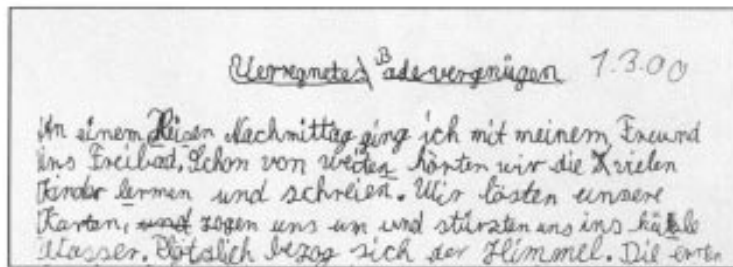 Verregnetes Badevergnügen 1.3.00
An einem Heisen Nachmittag ging ich mit meinem Freund
ins Freibad. Schon von weiten hörten wir die vielen
Kinder lermen und schreien. Wir lösten unsere
Karten, und zogen uns um und stürzten uns ins
Wasser. Plötzlich bezog sich der Himmel. Die ersten